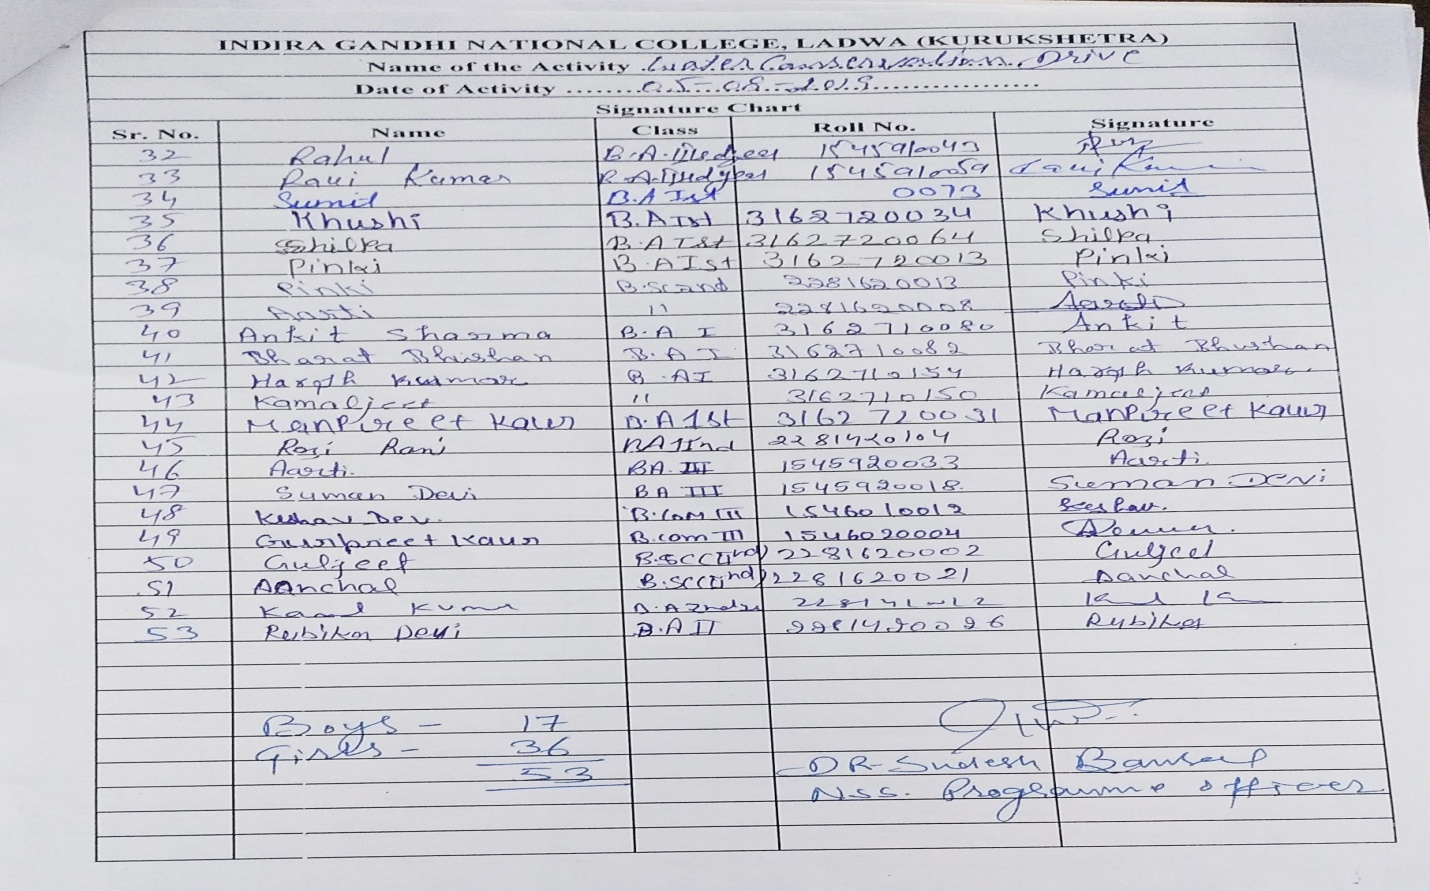 INDIRA GANDHI NATIONAL COLLEGE, LADWA (KURUKSHETRA)
Name of the Activity .Water Conservation Drive
Date of Activity ........05-08-2019.................
Signature Chart
Sr. No. Name Class Roll No. Signature
32 Rahul B.A. 1545910043
33 Ravi Kumar B.A. 1545910059 Ravi Kumar
34 Sumit B.A Ist 0073 Sumit
35 Khushi B.A Ist 3162720034 Khushi
36 Shilpa B.A Ist 3162720064 Shilpa
37 Pinki B.A Ist 3162720013 Pinki
38 Pinki B.Sc 2nd 2281620013 Pinki
39 Aarti 11 2281620008 Aarti
40 Ankit Sharma B.A I 3162710080 Ankit
41 Bharat Bhushan B.A I 3162710082 Bharat Bhushan
42 Harsh Kumar B.A I 3162710154 Harsh Kumar
43 Kamaljeet 11 3162710150 Kamaljeet
44 Manpreet Kaur B.A 1st 3162720031 Manpreet Kaur
45 Rozi Rani BA IInd 2281420104 Rozi
46 Aarti. BA III 1545920033 Aarti.
47 Suman Devi BA III 1545920018 Suman Devi
48 Keshav Dev. B.Com III 1546010012 Keshav.
49 Gurpreet Kaur B.com III 1546020004
50 Guljeet B.SC(IInd) 2281620002 Guljeet
51 Aanchal B.SC(IInd) 2281620021 Aanchal
52 Kumar
53 Rubika Devi B.A II 2281420026 Rubika
Boys - 17
Girls - 36
53
DR. Sudesh Bansal
NSS. Programme officer